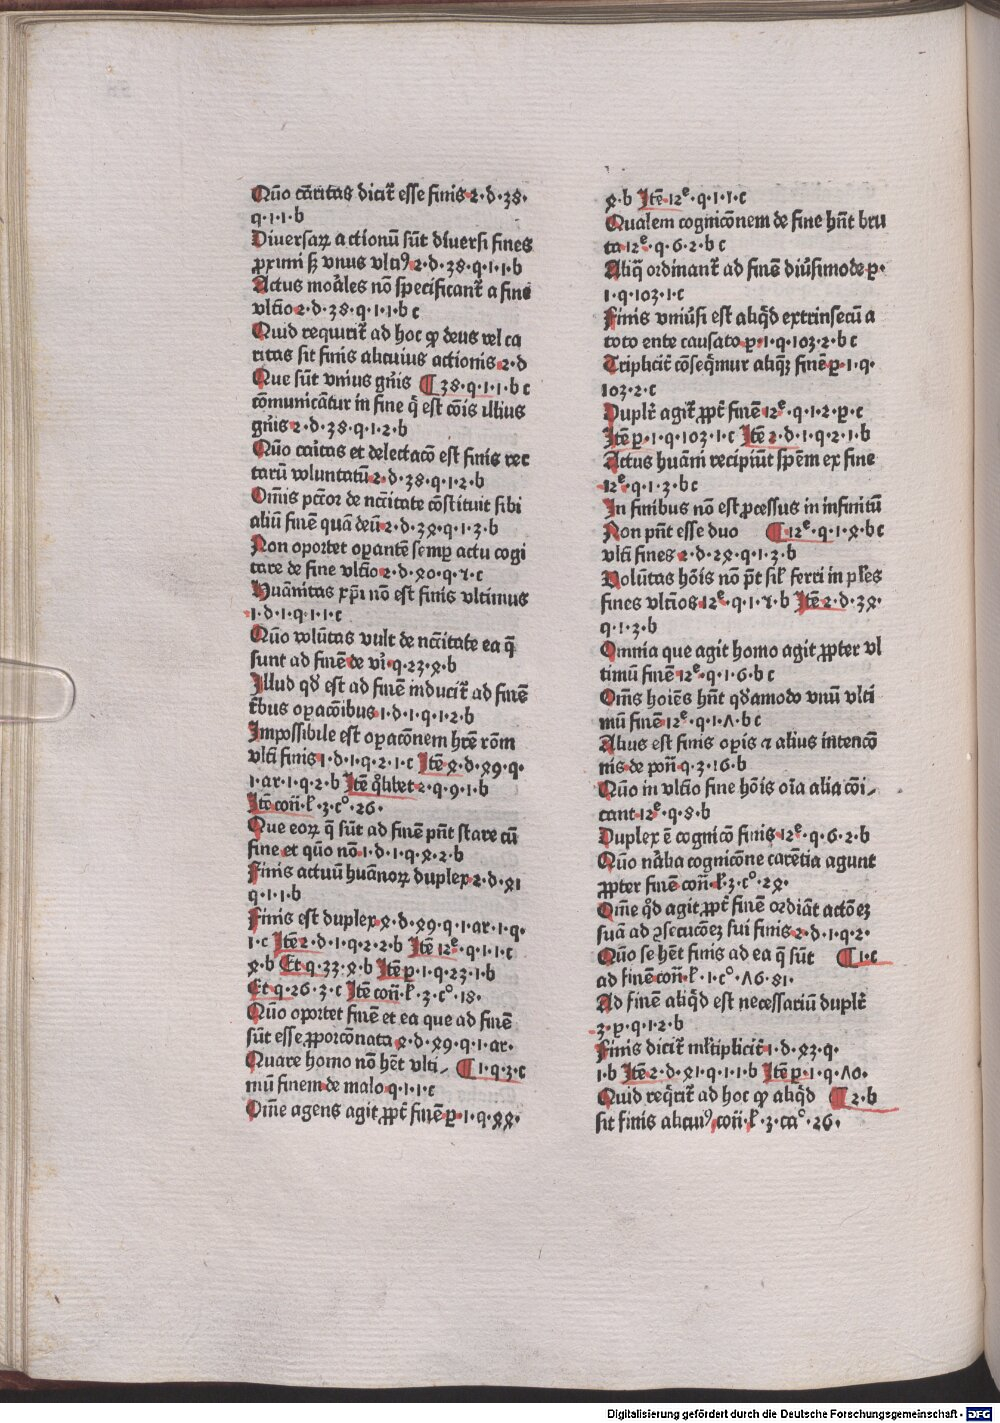 Quō cāritas dicit᷑ esse finis·2·d·38·
q·1·1·b
Diuersaꝝ actionū sūt diuersi fines
ꝓximi sꝫ vnus vltiꝰ·2·d·38·q·1·1·b
Actus moāles nō specificant᷑ a fine
vltio·2·d·38·q·1·1·b c
Quid requirit᷑ ad hoc ꝙ deus vel ca
ritas sit finis alicuius actionis·2·d
Que sūt vnius gn̄is ¶38·q·1·1·b c
cōmunicātur in fine q̄ est cōis illius
gn̄is·2·d·38·q·1·2·b
Quō caitas et delectacō est finis rec
tarū voluntatū·2·d·38·q·1·2·b
Omīs pctōr de nccītate cōstituit sibi
aliū finē quā deū·2·d·39·q·1·3·b
Non oportet oꝑantē semꝑ actu cogi
tare de fine vltio·2·d·40·q·1·c
Huānitas xp̄i nō est finis vltimus
·1·d·1·q·1·1·c
Quō volūtas vult de nccītate ea q̄
sunt ad finē de vi͛·q·23·4·b
Illud qd̄ est ad finē inducit᷑ ad finē
t͛bus oꝑacōibus·1·d·1·q·1·2·b
Impossibile est oꝑacōnem hr̄e rōm
vlti finis·1·d·1·q·2·1·c Itē 4·d·49·q·
1·ar·1·q·2·b Itē qͦlibet·2·q·9·1·b
Itē con̄·l͛·3·c°·26·
Que eoꝝ q̄ sūt ad finē pn̄t stare cū
fine et quō nō·1·d·1·q·4·2·b
Finis actuū huānoꝝ duplex·2·d·41
q·1·1·b
Finis est duplex·4·d·49·q·1·ar·1·q·
1·c Itē 2·d·1·q·2·2·b Itē 12ͤ·q·1·1·c
4·b Et q·33·4·b Itē p·1·q·23·1·b
Et q·26·3·c Itē con̄·l͛·3·c°·18·
Quō oportet finē et ea que ad finē
sūt esse ꝓporcōnata 4·d·49·q·1·ar·
Quare homo nō hēt vlti⸗ ¶1·q·3·c
mū finem de malo q·1·1·c
Om̄e agens agit ꝓpt͛ finē p·1·q·44·
4·b Itē 12ͤ·q·1·1·c
Qualem cognicōnem de fine hn̄t bru
ta 12ͤ·q·6·2·b c
Aliq̄ ordinant᷑ ad finē diūsimode p·
1·q·103·1·c
Finis vniūsi est aliqd̄ extrinsecū a
toto ente causato p·1·q·103·2·b c
Triplicit͛ cōseq̄mur aliquē finē p·1·q·
103·2·c
Duplr̄ agit᷑ ꝓpt͛ finē 12ͤ·q·1·2·p·c
Itē p·1·q·103·1·c Itē 2·d·1·q·2·1·b
Actus huāni recipiūt spēm ex fine
12ͤ·q·1·3·b c
In finibus nō est ꝓcessus in infinitū
Non pn̄t esse duo ¶12ͤ·q·1·4·b c
vlti fines·2·d·24·q·1·3·b
Volūtas hōis nō pt̄ sil͛ ferri in pl͛es
fines vltios·12ͤ·q·1·5·b Itē 2·d·34·
q·1·3·b
Omnia que agit homo agit ꝓpter vl
timū finem 12ͤ·q·1·6·b c
Om̄s hoiēs hn̄t qd̄amodo vnū vlti
mū finē 12ͤ·q·1·Λ·b c
Alius est finis oꝑis ⁊ alius intencō
nis de pon̄·q·3·16·b
Quō in vltio fine hōis oīa alia cōi⸗
cant·12ͤ·q·8·b
Duplex ē cognicō finis·12ͤ·q·6·2·b
Quō nālia cognicōne carētia agunt
ꝓpter finē con̄·l͛·3·c°·24·
Om̄e qd̄ agit ꝓpt͛ finē ordiāt actōeꝫ
suā ad ꝓsecucōeꝫ sui finis·2·d·1·q·2·
Quō se hēt finis ad ea q̄ sūt ¶1·c
ad finē con̄·l͛·1·c°·Λ6·81·
Ad finē aliqd̄ est necessariū duplr̄
3·p·q·1·2·b
Finis dicit᷑ ml͛tiplicit͛·1·d·43·q·
1·b Itē 2·d·41·q·1·1·b Itē p·1·q·Λ0·
Quid req̄rit᷑ ad hoc ꝙ aliqd̄ ¶2·b
sit finis alicuiꝰ con̄·l͛·3·ca°·26·
Digitalisierung gefördert durch die Deutsche Forschungsgemeinschaft · DFG